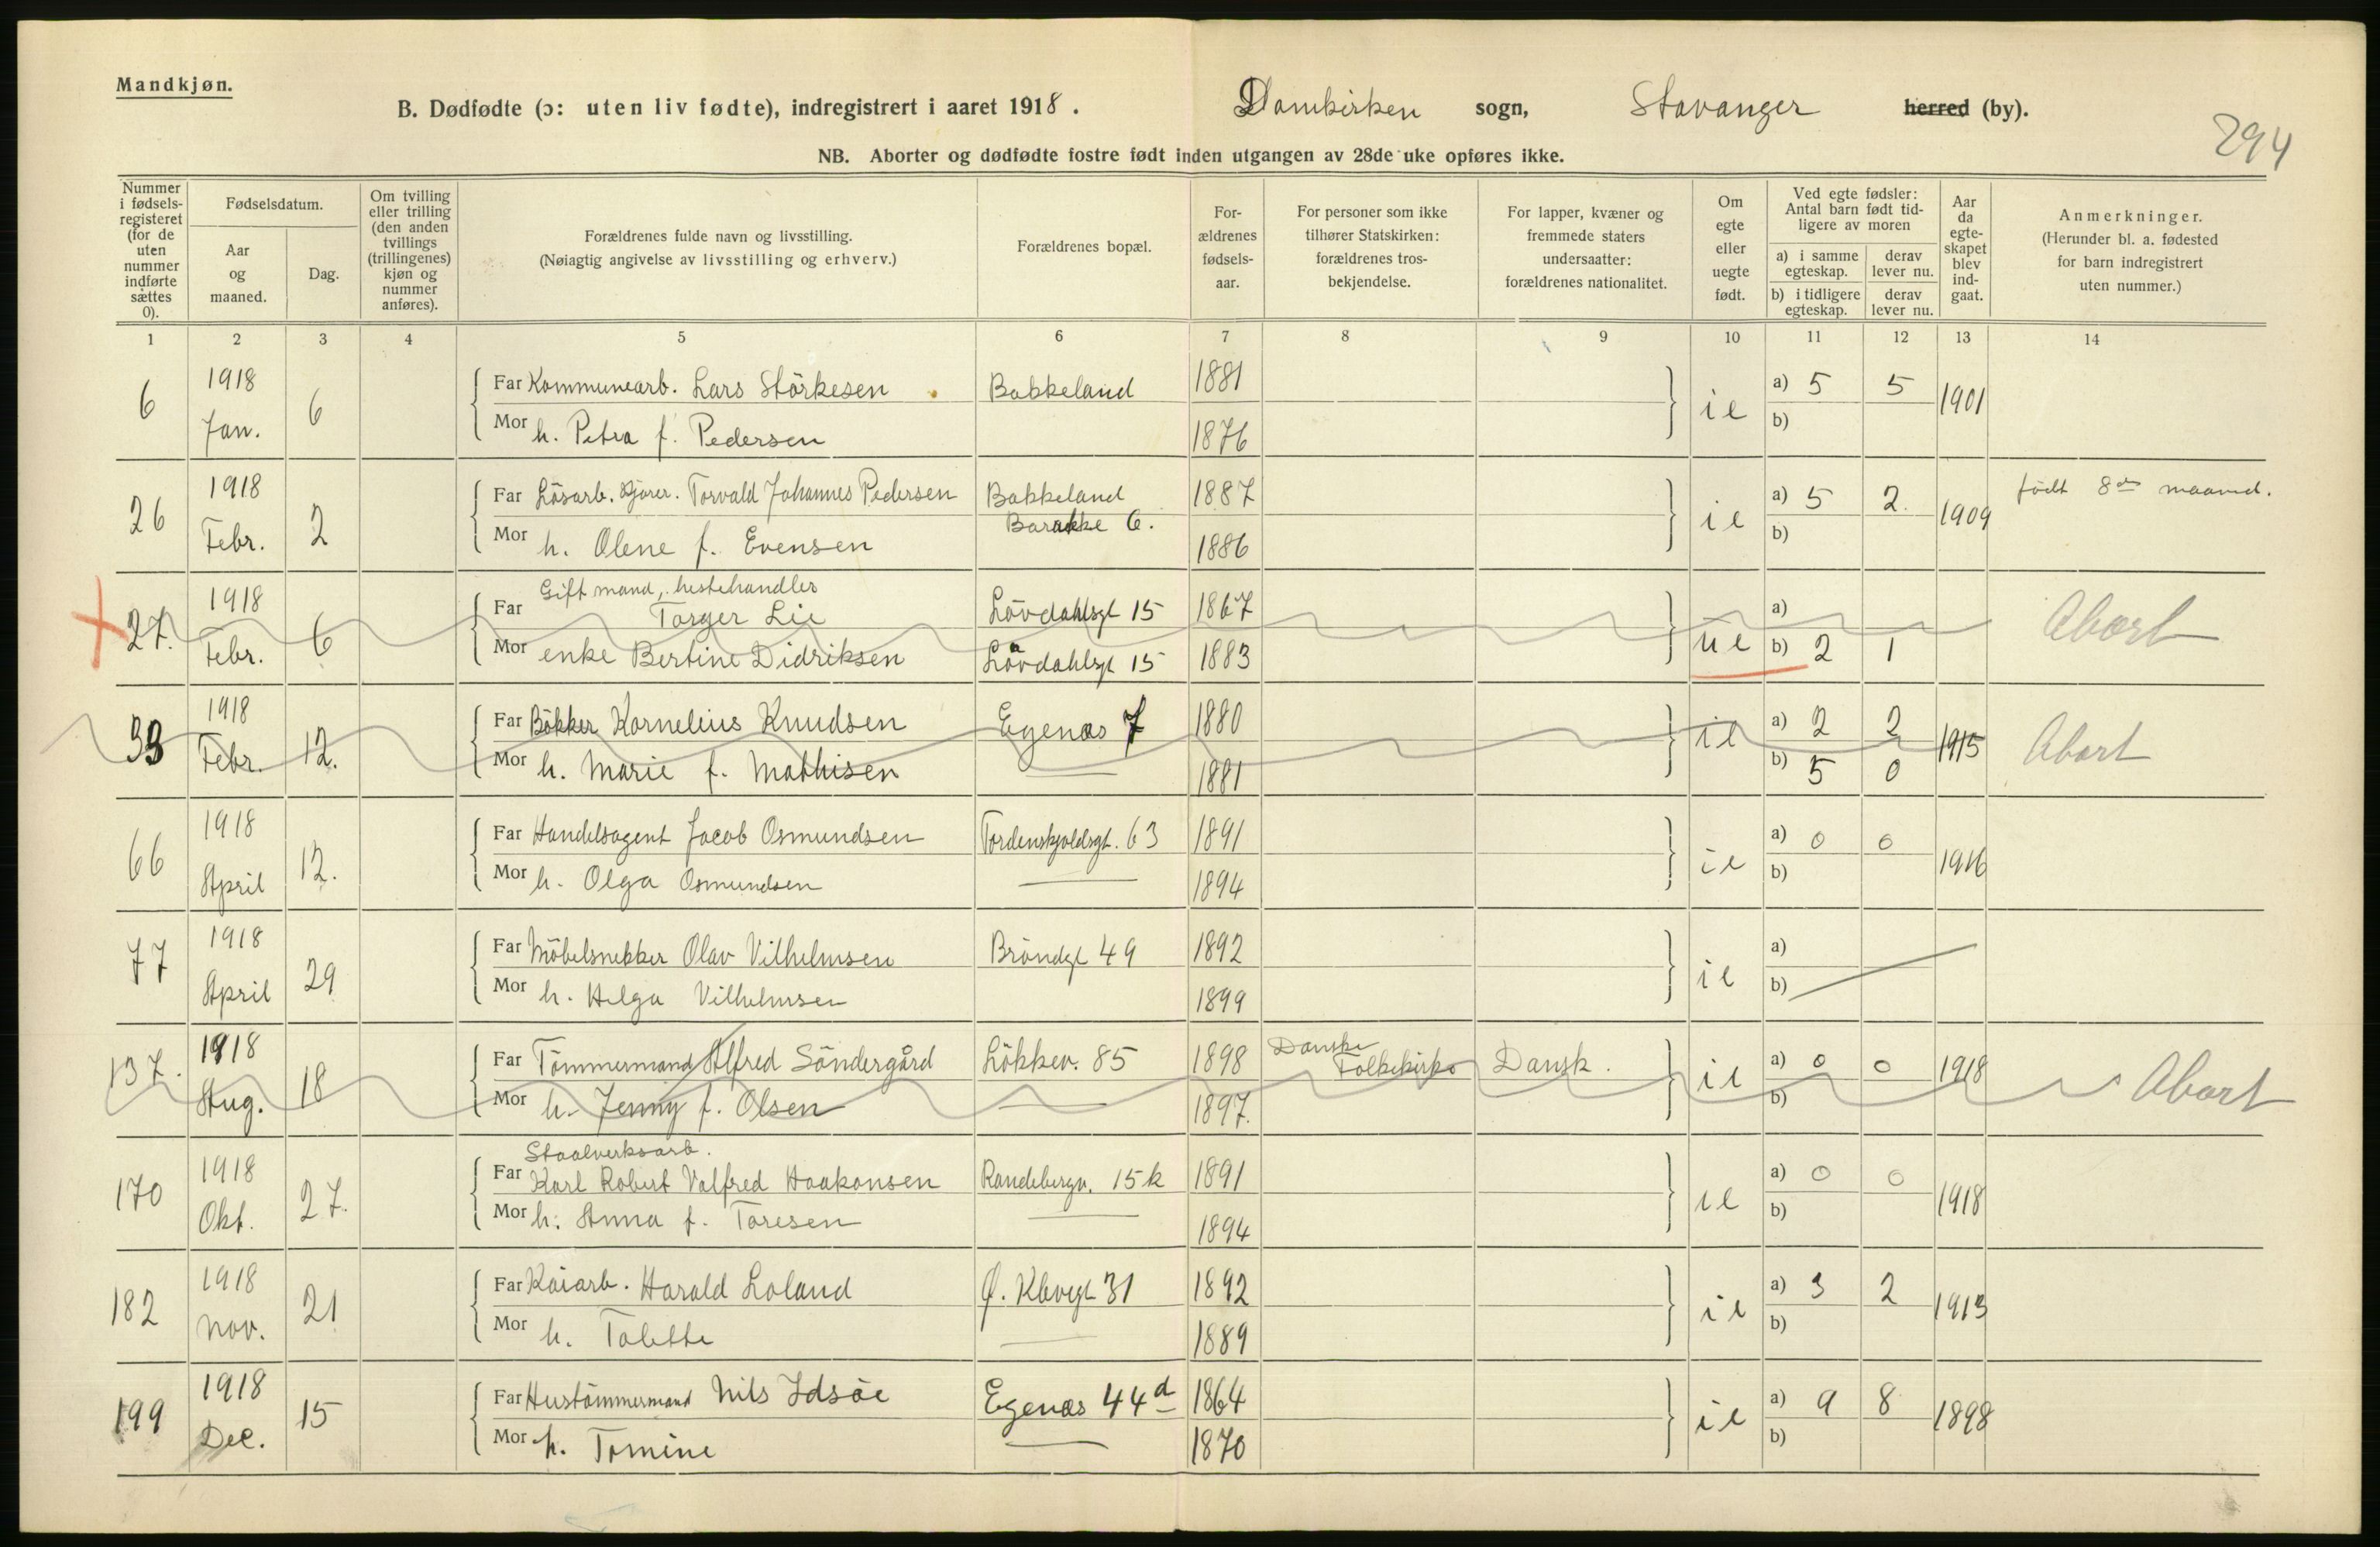 Mandkjøn.
B. Dødfødte (ɔ: uten liv fødte), indregistrert i aaret 1918. Domkirken sogn, Stavanger herred (by).
294
NB. Aborter og dødfødte fostre født inden utgangen av 28de uke opføres ikke.
Nummer i fødsels-registeret (for de uten nummer indførte sættes 0).
Fødselsdatum.
Aar og maaned.
Dag.
Om tvilling eller trilling (den anden tvillings (trillingenes) kjøn og nummer anføres).
Forældrenes fulde navn og livsstilling.
(Nøiagtig angivelse av livsstilling og erhverv.)
Forældrenes bopæl.
For-ældrenes fødsels-aar.
For personer som ikke tilhører Statskirken: forældrenes tros-bekjendelse.
For lapper, kvæner og fremmede staters undersaatter: forældrenes nationalitet.
Om egte eller uegte født.
Ved egte fødsler: Antal barn født tid-ligere av moren
a) i samme egteskap. derav lever nu.
b) i tidligere egteskap. derav lever nu.
Aar da egte-skapet blev ind-gaat.
Anmerkninger.
(Herunder bl. a. fødested for barn indregistrert uten nummer.)
1 2 3 4 5 6 7 8 9 10 11 12 13 14
6 1918 Jan. 6 Far Kommunearb. Lars Störkesen Bakkeland 1881 ie a) 5 5 1901
Mor h. Petra f. Pedersen 1876 b)
26 1918 Febr. 2 Far Lösarb. Kjörer. Torvald Johannes Pedersen Bakkeland Barakke 6. 1887 ie a) 5 2. 1909 født 8de maaned.
Mor h. Olene f. Evensen 1886 b)
27. 1918 Febr. 6 Far Gift mand, hestehandler Torger Lie Lövdahlsgt 15 1867 ue a) Abort
Mor enke Bertine Didriksen Lövdahlsgt 15 1883 b) 2 1
33 1918 Febr. 12. Far Bökker Kornelius Knudsen Egenæs 7 1880 ie a) 2 2 1915 Abort
Mor h. Marie f. Mathisen 1881 b) 5 0
66 1918 April 12. Far Handelsagent Jacob Osmundsen Tordenskjoldsgt. 63 1891 ie a) 0 0 1916
Mor h. Olga Osmundsen 1894 b)
77 1918 April 29 Far Möbelsnekker Olav Vilhelmsen Bröndgt 49 1892 ie a)
Mor h. Helga Vilhelmsen 1899 b)
137. 1918 Aug. 18 Far Tömmermand Alfred Söndergård Lökkev. 85 1898 Danske Folkekirke Dansk. ie a) 0 0 1918 Abort
Mor h. Jenny f. Olsen 1897. b)
170 1918 Okt. 27. Far Staalverksarb. Karl Robert Valfred Haakonsen Randebergv. 15k 1891 ie a) 0 0 1918
Mor h. Anna f. Toresen 1894 b)
182 1918 Nov. 21 Far Kaiarb. Harald Loland Ø. Kbvegt 31 1892 ie a) 3 2 1913
Mor h. Tolette 1889 b)
199 1918 Dec. 15 Far Hustömmermand Nils Idsöe Egenæs 44d 1864 ie a) 9 8 1898
Mor h. Tomine 1870 b)